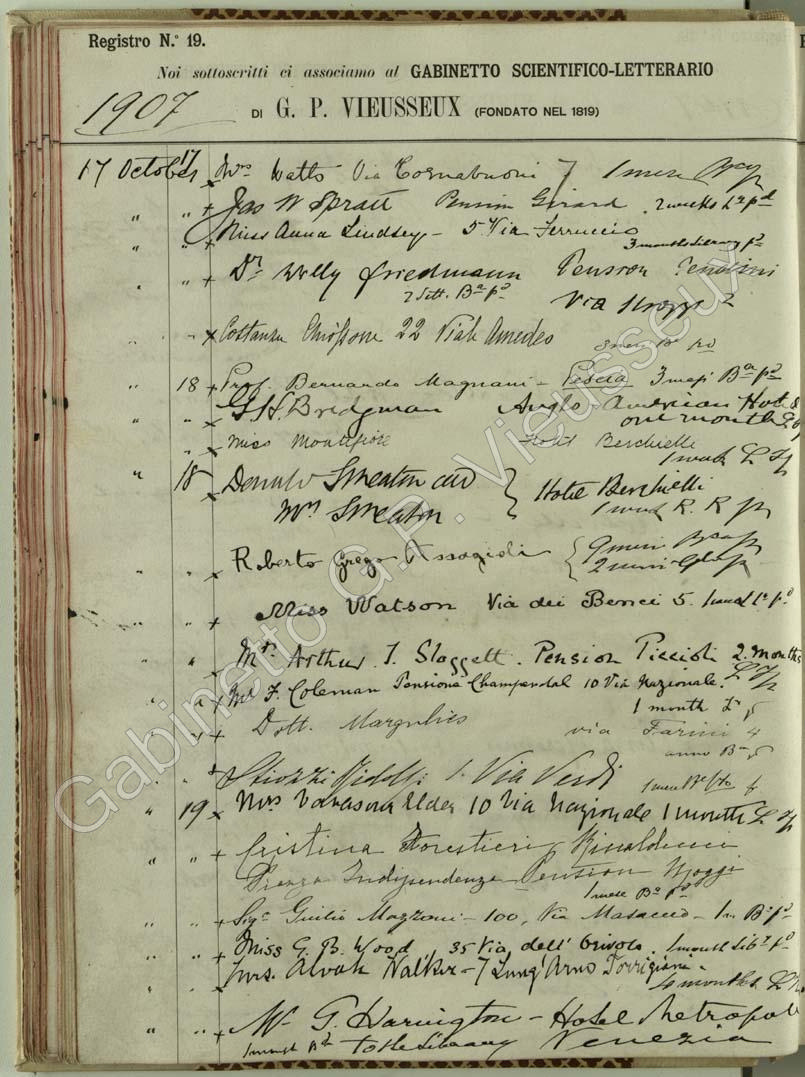 Registro N.° 19.
Noi sottoscritti ci associamo al GABINETTO SCIENTIFICO-LETTERARIO
1907
DI G. P. VIEUSSEUX (FONDATO NEL 1819)
17 October 17 × Mrs Watts Via Tornabuoni 7 1 mese
" " + Jas W Spratt Pension Girard. 2 weeks Lª pd
" " + Miss Anna Lindsey - 5 Via Ferruccio
3 months Library pd
" " + Dr Willy Friedmann Pension Bendini
2 Sett. Bª pd Via
" " × Costanza 22 Viale Amedeo
3 mesi Bª pd
" 18 + Prof. Bernardo Magnani - Pescia 3 mesi Bª pd
" " × G. H. Bridgman Anglo-American Hotel
one month
" " × Miss Montefiore Hotel Berchielli
1 week L
" 18 × Donald Smeaton and
Mrs Smeaton } Hotel Berchielli
1 week R. R
" " × Roberto Grego Assagioli { 9 mesi
2 mesi
" " + Miss Watson Via dei Benci 5.
" " Mr. Arthur J. Sloggett. Pension Piccioli 2. months
" " × Mr F. Coleman Pensione Champendal 10 Via Nazionale.
1 month
" " + Dott. Margulies via Farini 4
anno Bª
" " Stiozzi Ridolfi 1. Via Verdi
" 19 × Mrs Vavasour Elder 10 Via Nazionale 1 month
" " + Cristina Forestieri Rinalducci
Piazza Indipendenza Pension
1 mese Bª pd
" " + Sigr Giulio Mazzoni - 100, Via Masaccio - 1 Bª pd
" " + Miss G. B. Wood, 35 Via dell' Orivolo. 1 month Liby pd
" " × Mrs. Alvah Walker - 7 Lung'Arno Torrigiani.
4 months
" " + Mr G. Harington - Hotel Metropole
1 month to the Library Venezia
Gabinetto G.P. Vieusseux